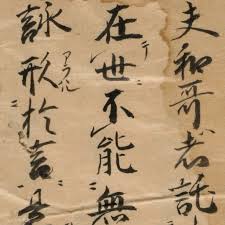 夫和哥者託
在世不能無
詠形於言是